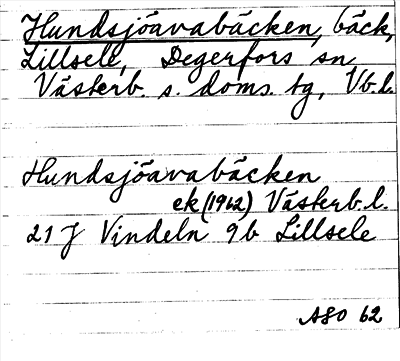 Hundsjöavabäcken, bäck,
Lillsele, Degerfors sn
Västerb. s. doms. tg, Vb.l.
Hundsjöavabäcken
ek (1962) Västerb.l.
21 J Vindeln 9b Lillsele
ASO 62